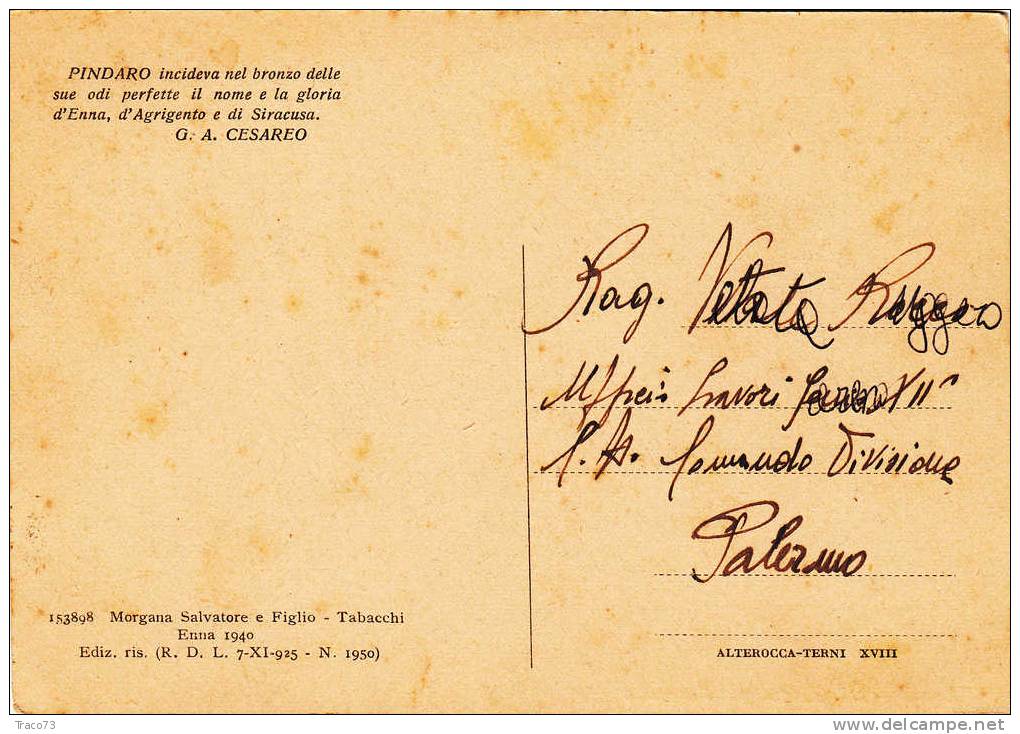 PINDARO incideva nel bronzo delle
sue odi perfette il nome e la gloria
d'Enna, d'Agrigento e di Siracusa.
G. A. CESAREO
Rag. Ruggero
Lavori XII
Comando Divisione
Palermo
153898 Morgana Salvatore e Figlio - Tabacchi
Enna 1940
Ediz. ris. (R. D. L. 7-XI-925 - N. 1950)
ALTEROCCA-TERNI XVIII
Traco73
www.delcampe.net